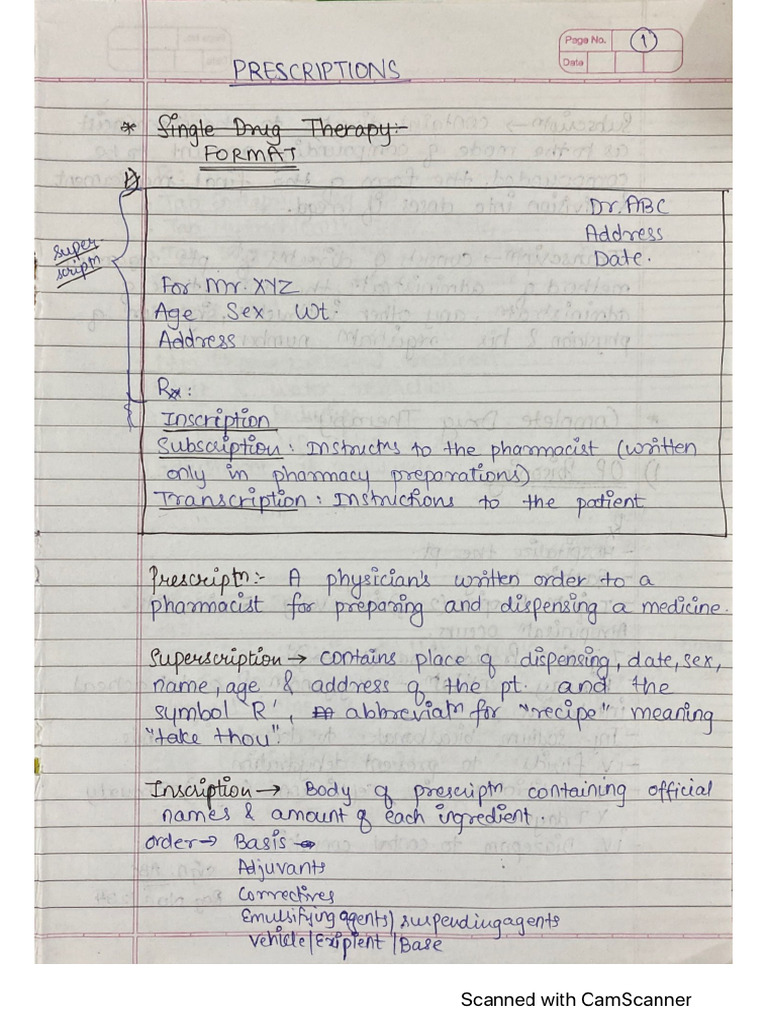 Page No. 1
Date
PRESCRIPTIONS
* Single Drug Therapy:-
FORMAT
Dr. ABC
Address
Date.
Super-
script^n
For Mr. XYZ
Age Sex Wt.
Address
Rx:
Inscription
Subscription: Instruct^ns to the pharmacist (written
only in pharmacy preparations)
Transcription: Instructions to the patient
Prescript^n:- A physician's written order to a
pharmacist for preparing and dispensing a medicine.
Superscription → contains place of dispensing, date, sex,
name, age & address of the pt. and the
symbol 'R', abbreviat^n for "recipe" meaning
"take thou".
Inscription → Body of prescript^n containing official
names & amount of each ingredient.
order → Basis
Adjuvants
Correctives
Emulsifying agents/suspending agents
vehicle/Exipient/Base
Scanned with CamScanner